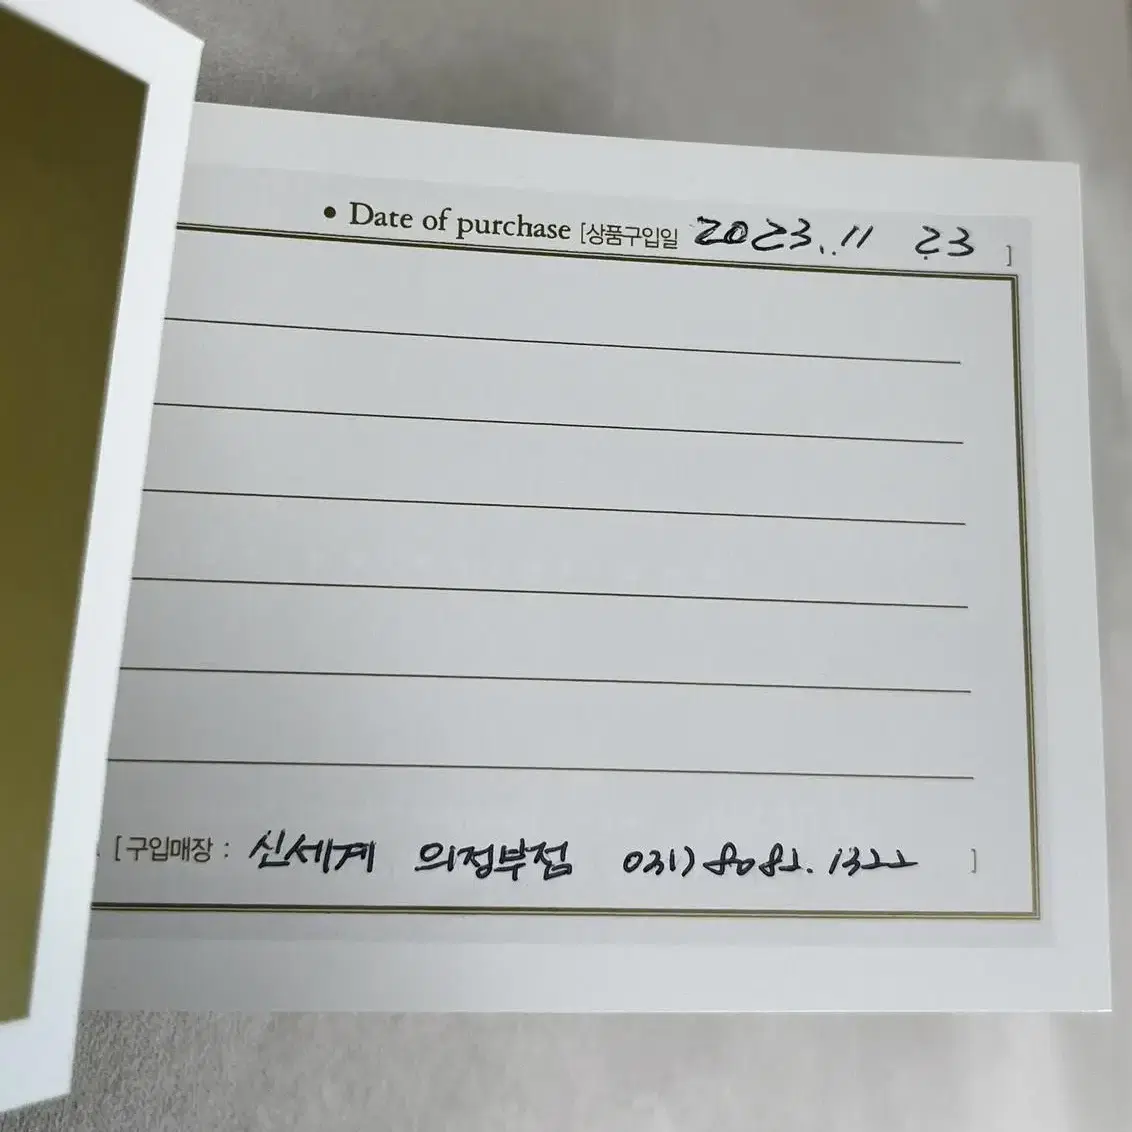 • Date of purchase [상품구입일 2023. 11 23 ]
[구입매장 : 신세계 의정부점 031) 8082. 1322 ]